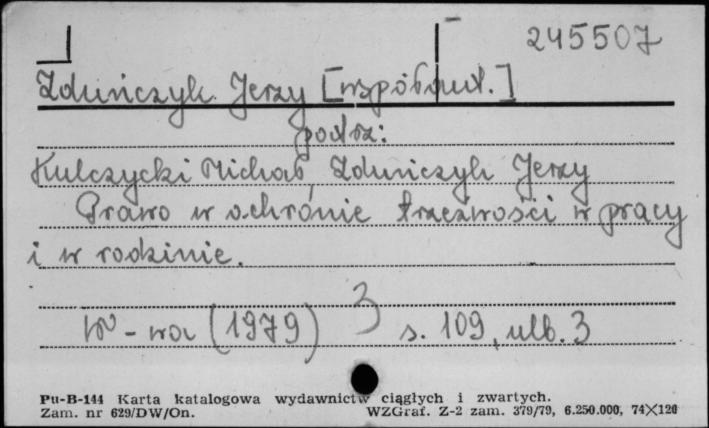 245507
Zduńczyk Jerzy [współaut.]
patrz:
Kulczycki Michał, Zduńczyk Jerzy
Prawo w ochronie trzeźwości w pracy
i w rodzinie.
W-wa (1979) 3 s. 109, nlb. 3
Pu-B-144 Karta katalogowa wydawnictw ciągłych i zwartych.
Zam. nr 629/DW/On. WZGraf. Z-2 zam. 379/79, 6.250.000, 74×120